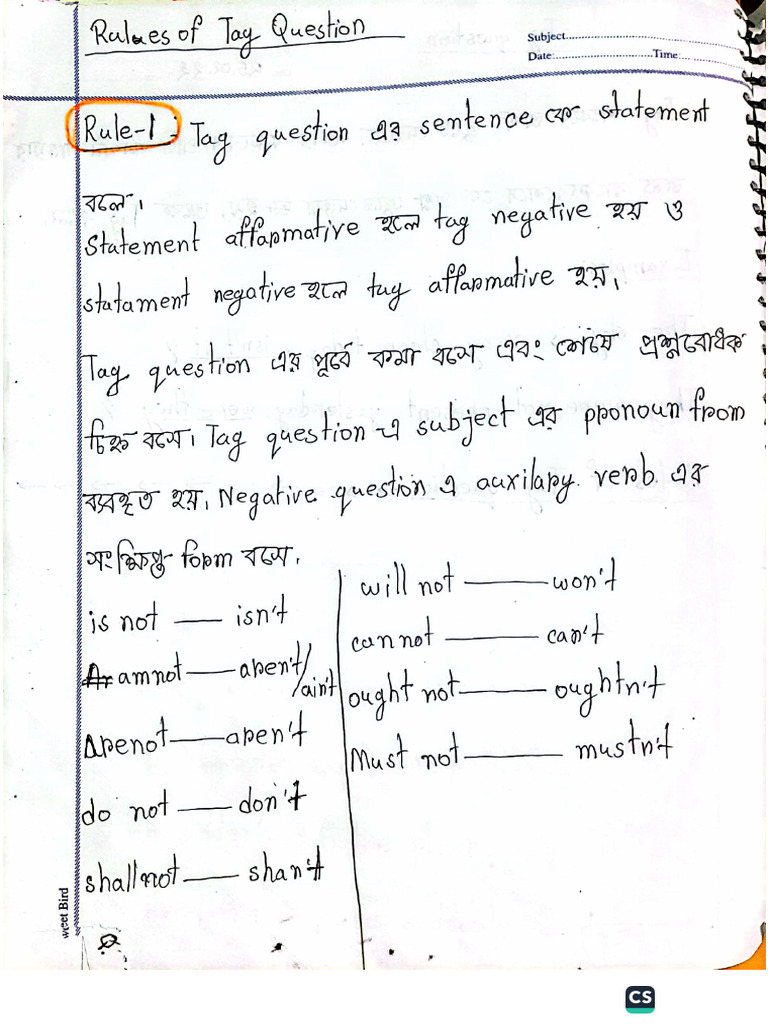 Rulues of Tag Question
Subject
Date: Time:
Rule-1 : Tag question এর sentence কে statement
বলে।
Statement affarmative হলে tag negative হয় ও
statament negative হলে tag affarmative হয়।
Tag question এর পূর্বে কমা বসে এবং শেষে প্রশ্নবোধক
চিহ্ন বসে। Tag question-এ subject এর pronoun from
ব্যবহৃত হয়। Negative question এ auxilary verb এর
সংক্ষিপ্ত form বসে।
is not — isn't
amnot — aren't/
ain't
Arenot — aren't
do not — don't
shall not — shan't
will not — won't
can not — can't
ought not — oughtn't
Must not — mustn't
weet Bird
CS